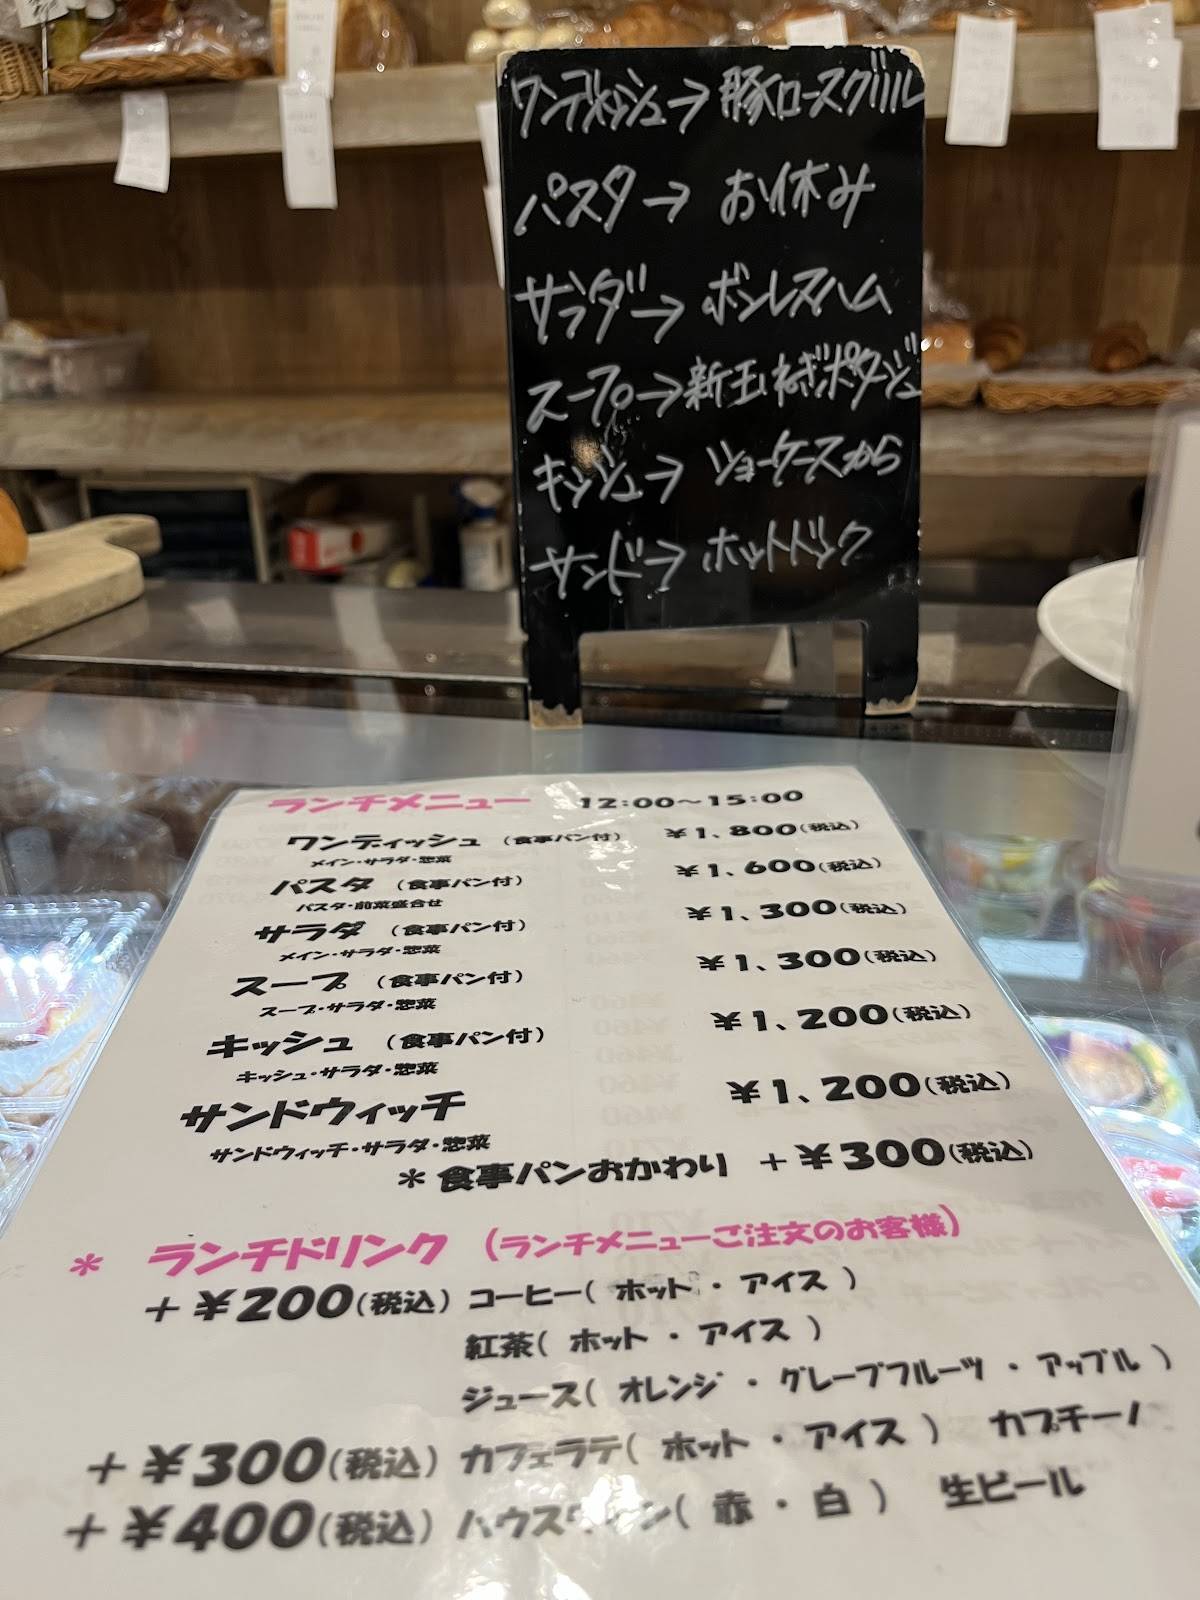 ワンデイッシュ→豚ロースグリル
パスタ→お休み
サラダ→ボンレスハム
スープ→新玉ねぎポタージュ
キッシュ→ショーケースから
サンド→ホットドック
ランチメニュー 12:00～15:00
ワンディッシュ （食事パン付） ￥1、800(税込)
メイン・サラダ・惣菜
パスタ （食事パン付） ￥1、600(税込)
パスタ・前菜盛合せ
サラダ （食事パン付） ￥1、300(税込)
メイン・サラダ・惣菜
スープ （食事パン付） ￥1、300(税込)
スープ・サラダ・惣菜
キッシュ （食事パン付） ￥1、200(税込)
キッシュ・サラダ・惣菜
サンドウィッチ ￥1、200(税込)
サンドウィッチ・サラダ・惣菜
＊食事パンおかわり ＋￥300(税込)
＊ ランチドリンク （ランチメニューご注文のお客様）
＋￥200(税込) コーヒー（ ホット ・ アイス ）
紅茶（ ホット ・ アイス ）
ジュース（ オレンジ ・ グレープフルーツ ・ アップル ）
＋￥300(税込) カフェラテ（ ホット ・ アイス ） カプチーノ
＋￥400(税込) ハウスワイン（ 赤 ・ 白 ） 生ビール